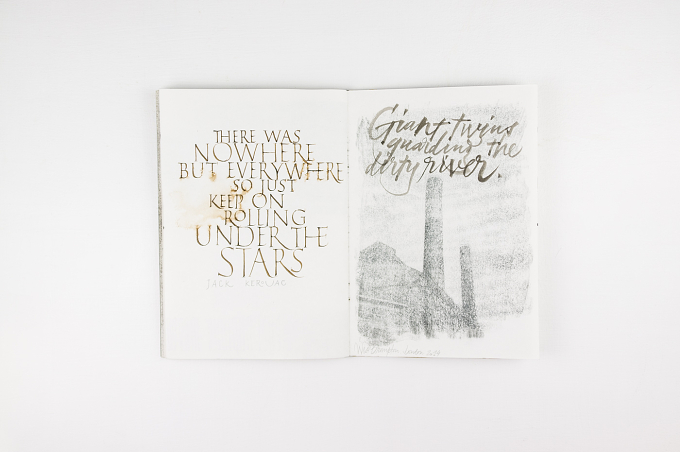 THERE WAS
NOWHERE
BUT EVERYWHERE
SO JUST
KEEP ON
ROLLING
UNDER THE
STARS
JACK KEROUAC
Giant, twins
guarding the
dirty river.
London